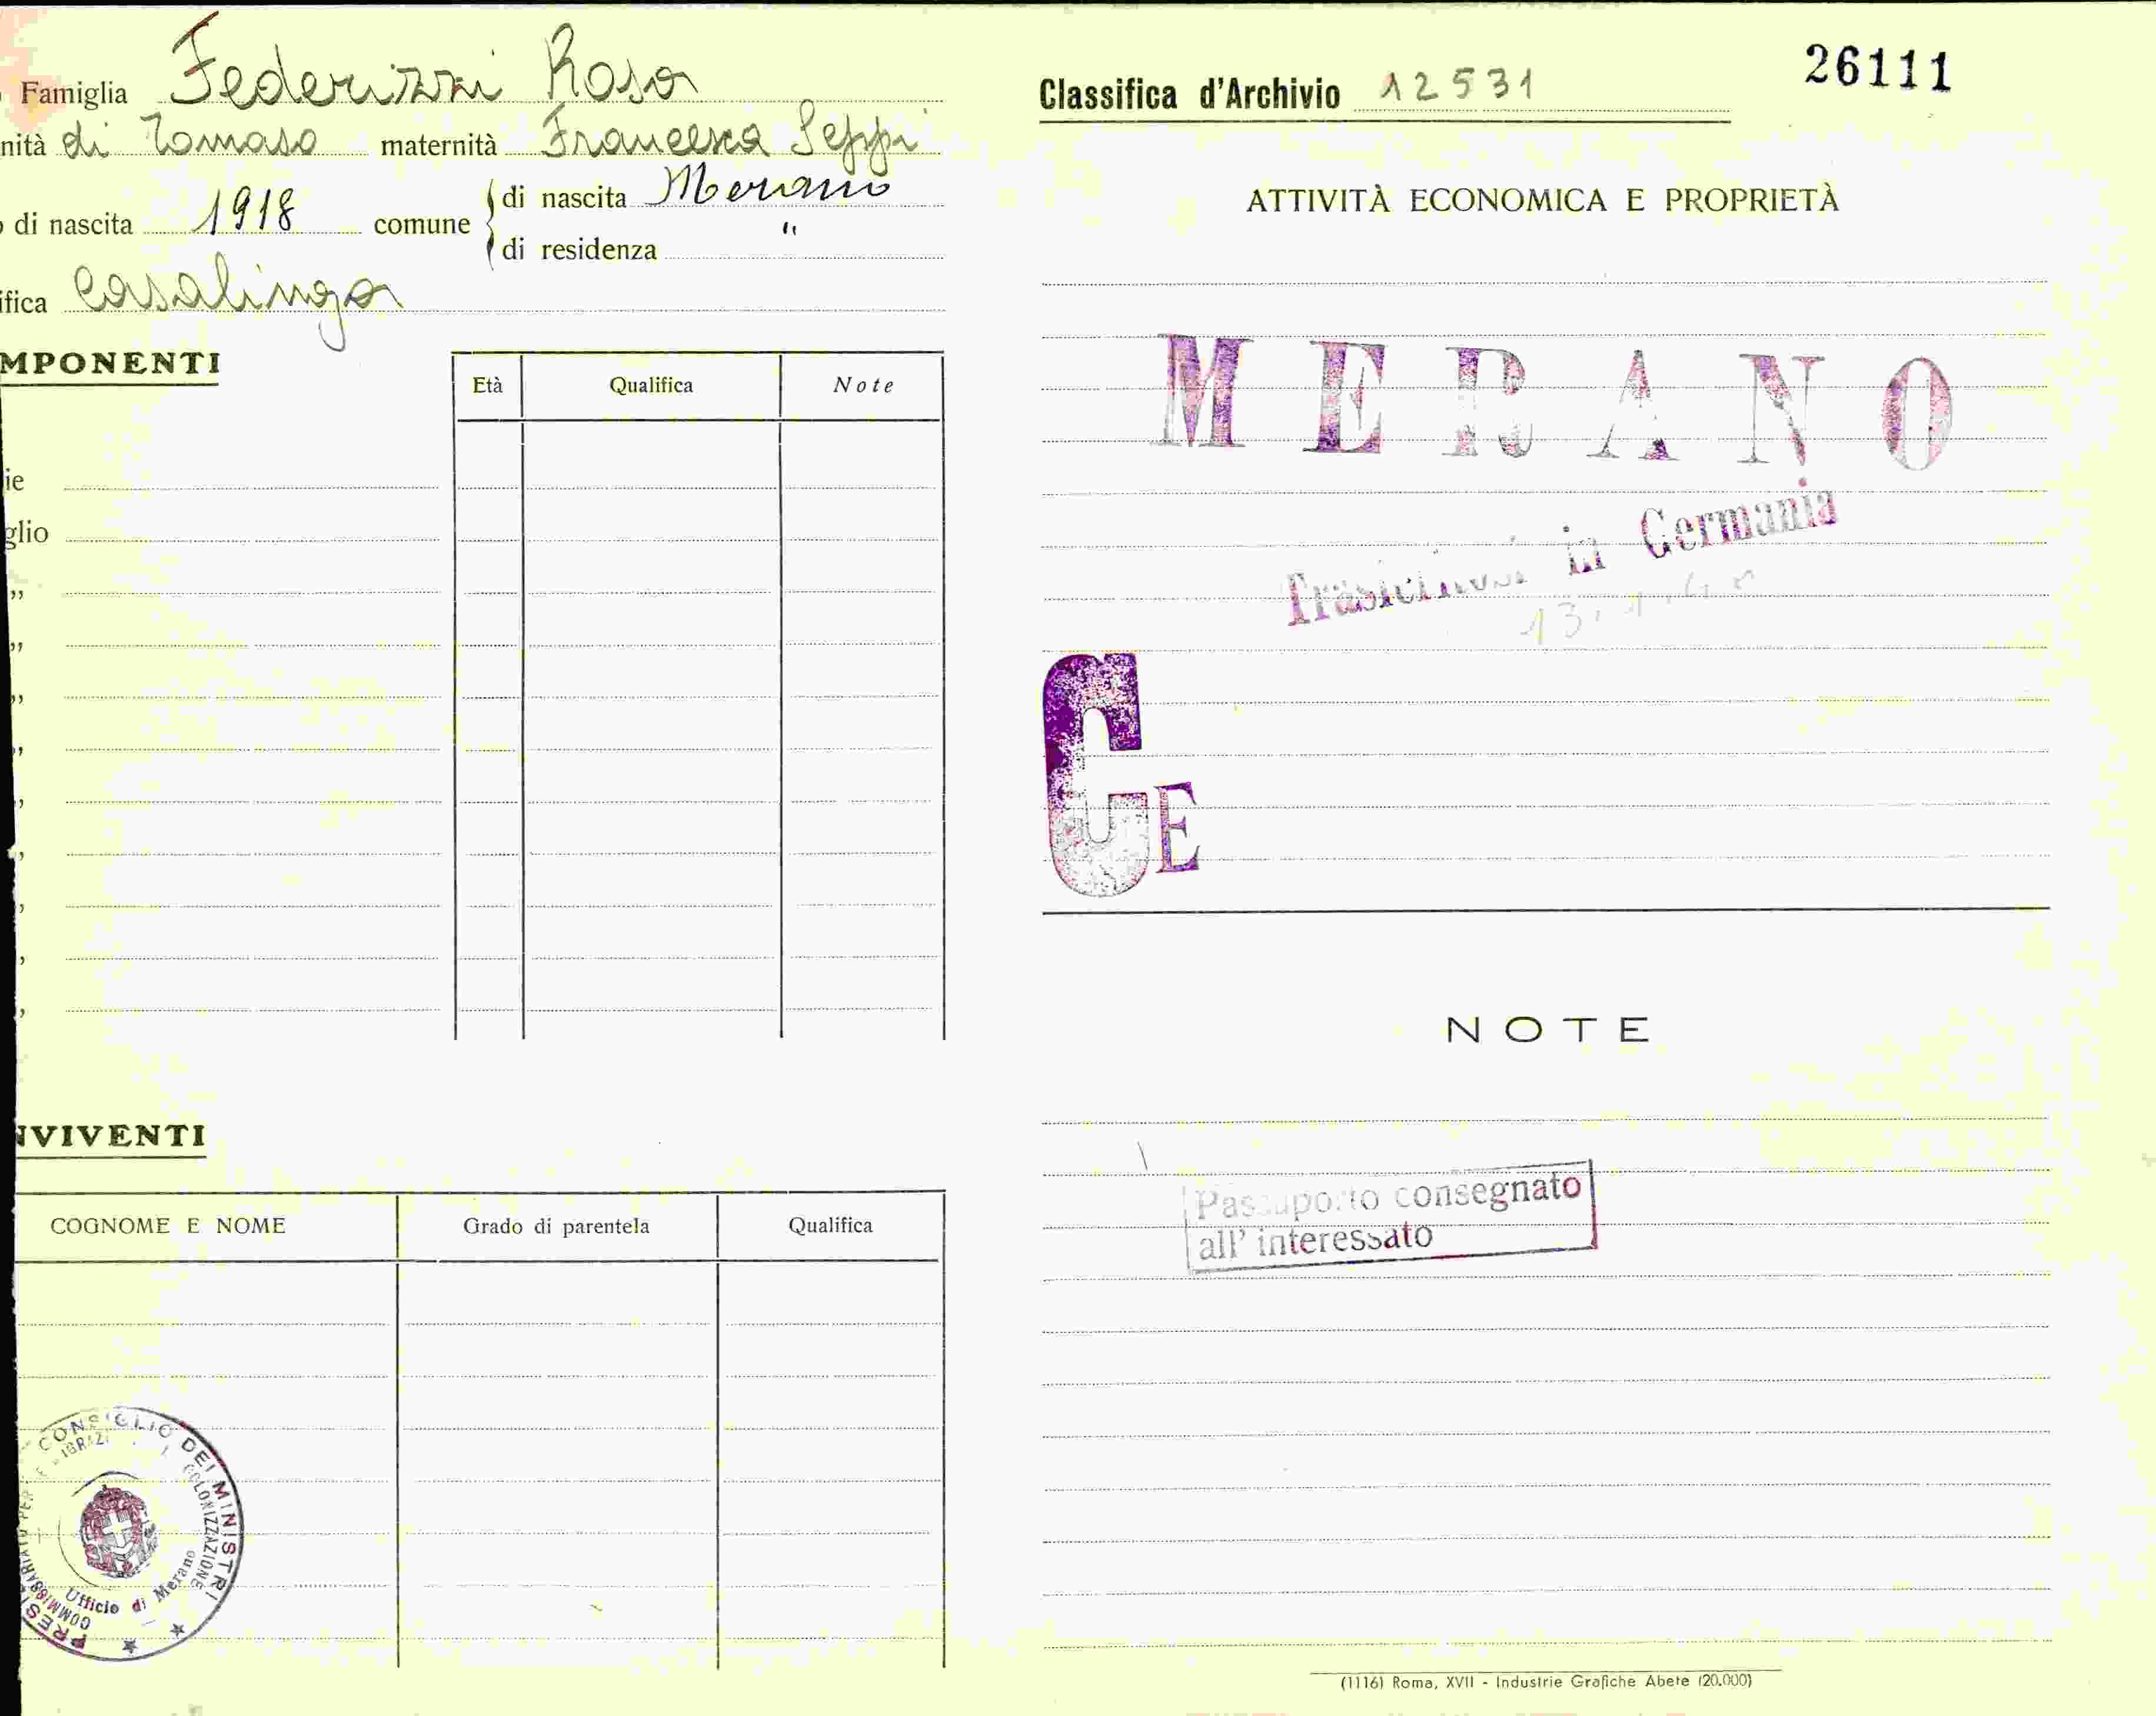 Famiglia Federizzi Rosa
nità di Tomaso maternità Francesca Seppi
di nascita 1918 comune di nascita Merano
di residenza "
ifica Casalinga
MPONENTI
Età Qualifica Note
ie
glio
"
"
"
"
"
"
"
"
"
NVIVENTI
COGNOME E NOME Grado di parentela Qualifica
CONSIGLIO DEI MINISTRI
COLONIZZAZIONE
Ufficio di Merano
Classifica d'Archivio 12531
26111
ATTIVITÀ ECONOMICA E PROPRIETÀ
MERANO
in Germania
C E
NOTE
Passaporto consegnato
all' interessato
(1116) Roma, XVII - Industrie Grafiche Abete (20.000)